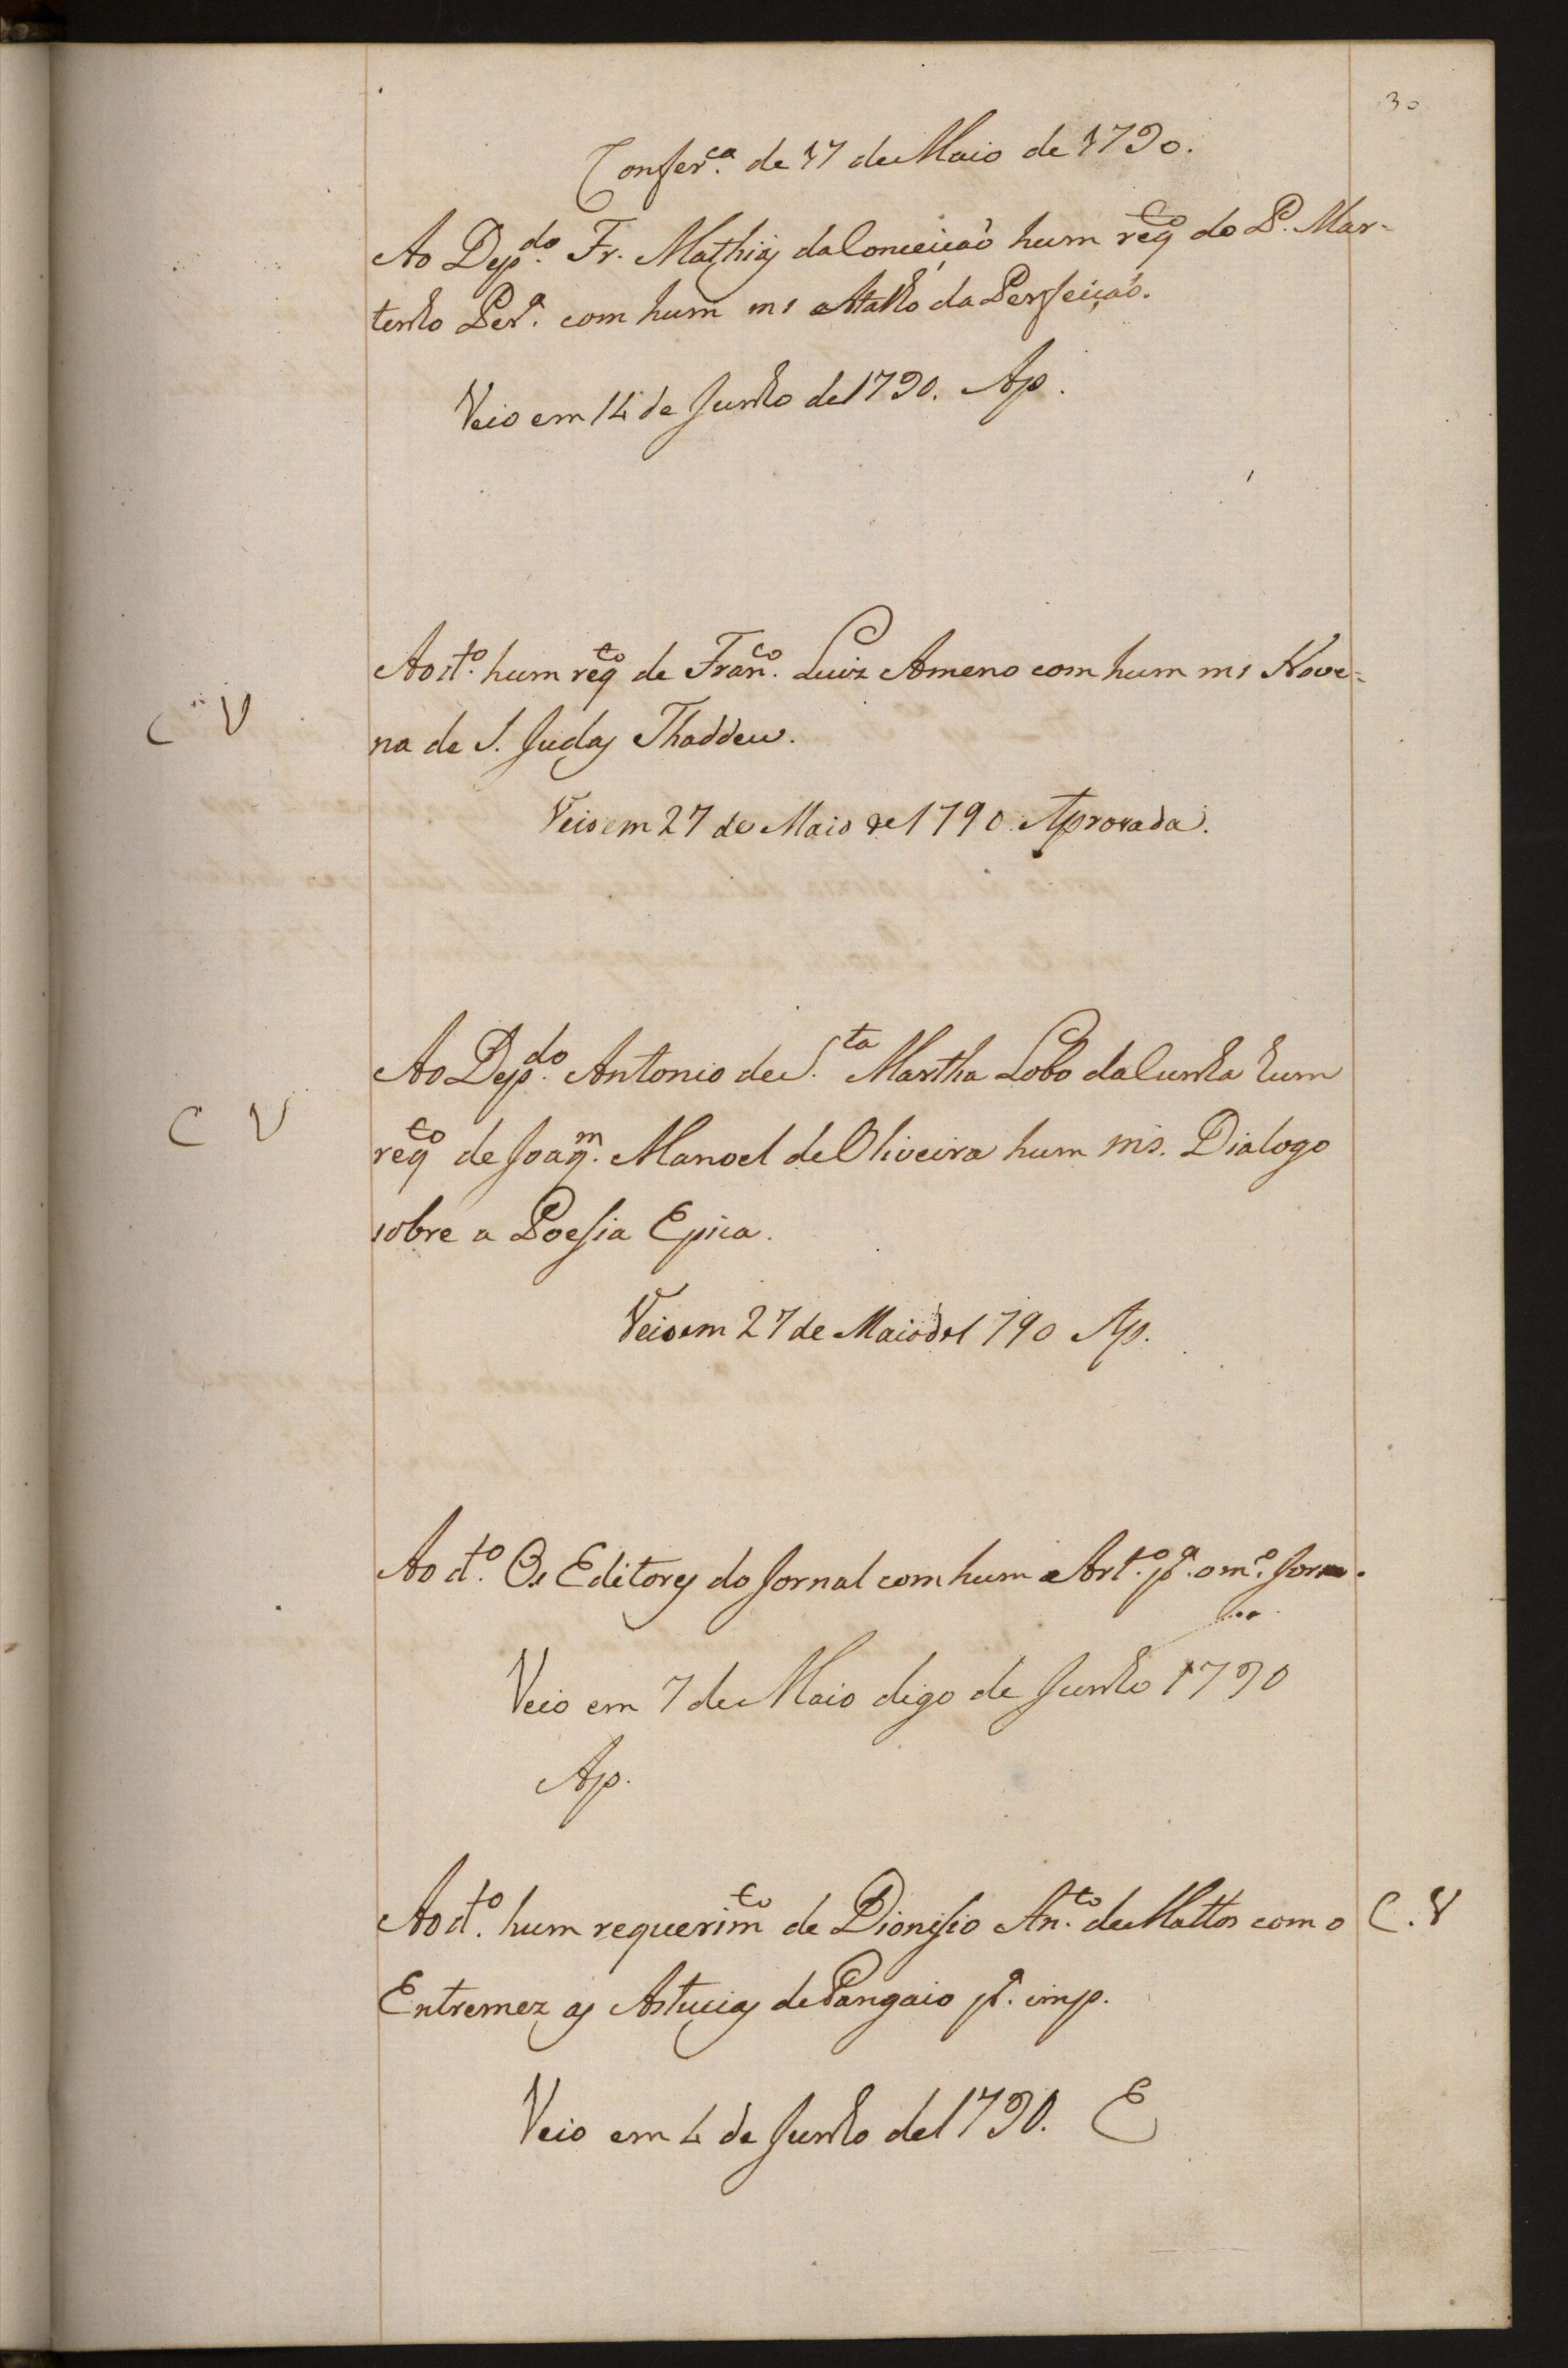 30
Confer.ca de 17 de Maio de 1790.
Ao Dep.do Fr. Mathias da Conceição hum reqto do P. Mar-
tinho Per.a com hum ms Atalho da Perfeição.
Veio em 14 de Junho de 1790. Ap.
Ao d.to hum reqto de Fran.co Luiz Ameno com hum ms Nove-
C V
na de S. Judas Thaddeu.
Veio em 27 de Maio de 1790. Aprovada.
Ao Dep.do Antonio de S.ta Martha Lobo da Cunha hum
C V
reqto de Joaq.m Manoel de Oliveira hum ms. Dialogo
sobre a Poesia Epica.
Veio em 27 de Maio de 1790 Ap.
Ao d.to Os Editores do Jornal com hum Art.o p.a o m.o Jorn.
Veio em 7 de Maio digo de Junho 1790
Ap.
Ao d.to hum requerimto de Dionisio An.to de Mattos com o C. V
Entremez as Astucias de Pangaio p.a imp.
Veio em 4 de Junho de 1790. E